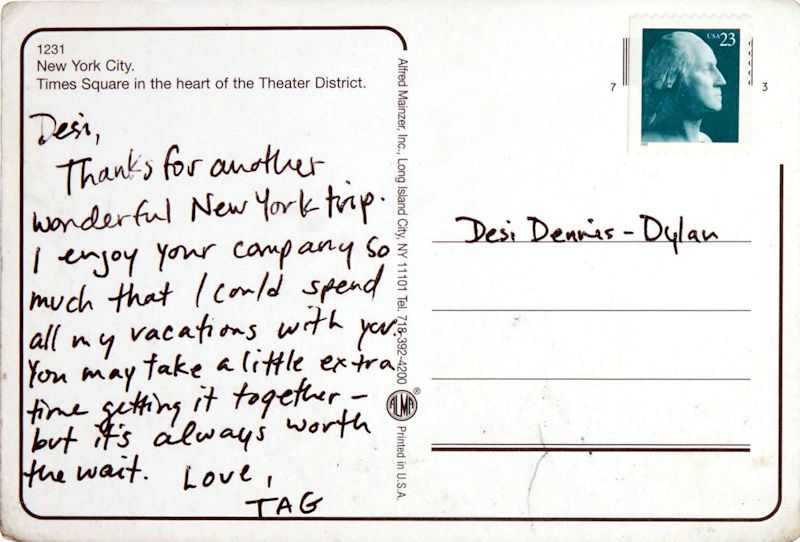 1231
New York City.
Times Square in the heart of the Theater District.
Desi,
Thanks for another
wonderful New York trip.
I enjoy your company so
much that I could spend
all my vacations with you.
You may take a little extra
time getting it together –
but it's always worth
the wait. Love,
TAG
Alfred Mainzer, Inc., Long Island City, NY 11101 Tel. 718-392-4200
ALMA®
Printed in U.S.A.
USA 23
7
3
Desi Dennis - Dylan